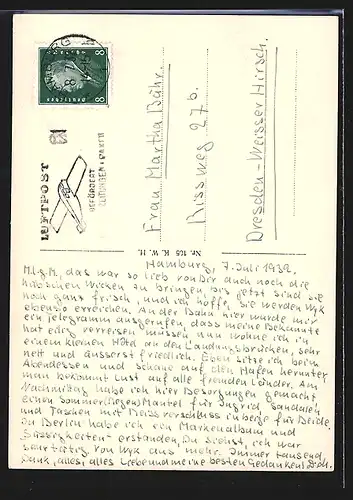 8 8
Deutsches
LUFTPOST
BEFÖRDERT
Frau Martha Bähr.
Rissweg 27b.
Dresden-Weisser Hirsch.
Nr. 105 K. W. H.
Hamburg, 7. Juli 1932.
M.l.g.M., das war so lieb von Dir auch noch die
hübschen Wicken zu bringen, bis jetzt sind sie
noch ganz frisch, und ich hoffe, sie werden Wyk
ebenso erreichen. An der Bahn hier wurde mir
ein Telegramm ausgerufen, dass meine Bekannte
hat eilig verreisen müssen, nun wohne ich in
einem kleinen Hôtel an den Landungsbrücken, sehr
nett und äusserst friedlich. Eben sitze ich beim
Abendessen und schaue auf den Hafen herunter,
man bekommt Lust auf alle fremden Länder. Am
Nachmittag habe ich hier Besorgungen gemacht,
einen Sommer(Regen)Mantel für Ingrid, Sandalen
und Taschen mit Reissverschluss in beige für Beide.
In Berlin habe ich ein Markenalbum und
"Süssigkeiten" erstanden. Du siehst, ich war
von Wyk aus mehr. Immer tausend
Dank, alles, alles Liebe und meine besten Gedanken!